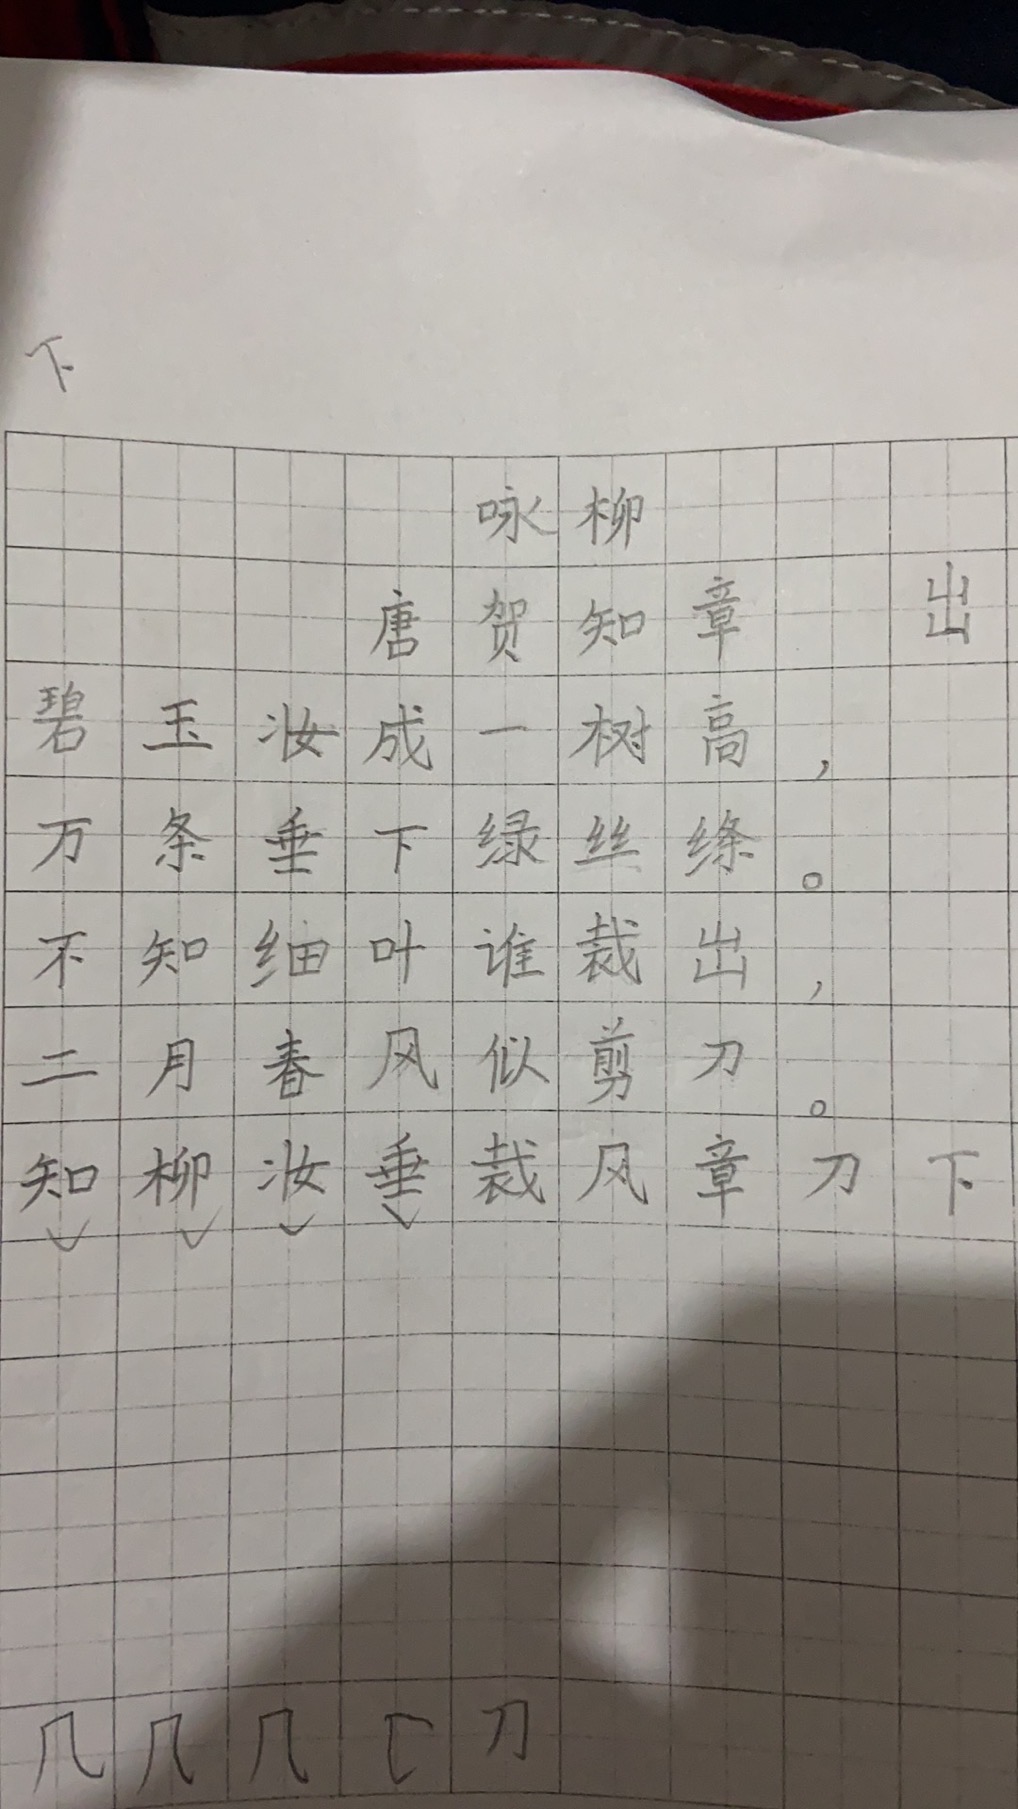 下
咏柳
唐贺知章 出
碧玉妆成一树高，
万条垂下绿丝绦。
不知细叶谁裁出，
二月春风似剪刀。
知柳妆垂裁风章刀下
几几几匚刀